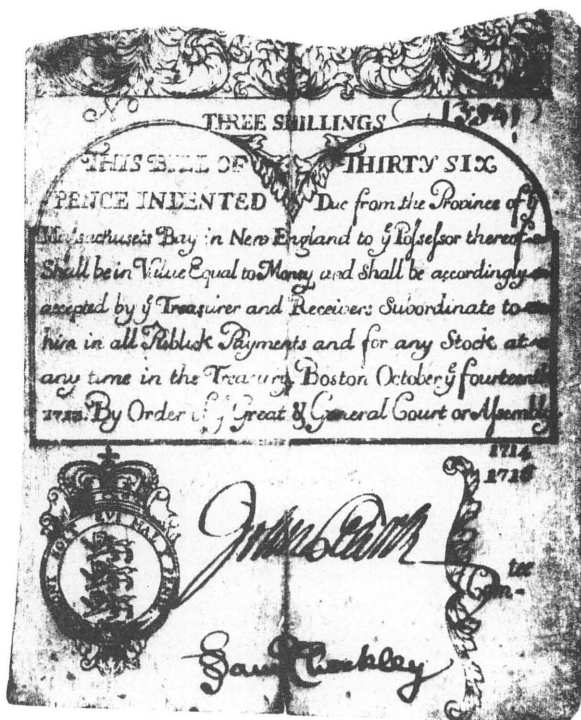 Nº
THREE SHILLINGS
THIS BILL OF THIRTY SIX
PENCE INDENTED Due from the Province of yͤ
Massachusets Bay in New England to yͤ Possessor thereof
Shall be in Value Equal to Money and shall be accordingly
accepted by yͤ Treasurer and Receivers Subordinate to
him in all Publick Payments and for any Stock at
any time in the Treasury Boston October yͤ fourteenth
By Order of yͤ Great & General Court or Assembly
1714
1716
John Clark
tee
Com-
Sam Checkley